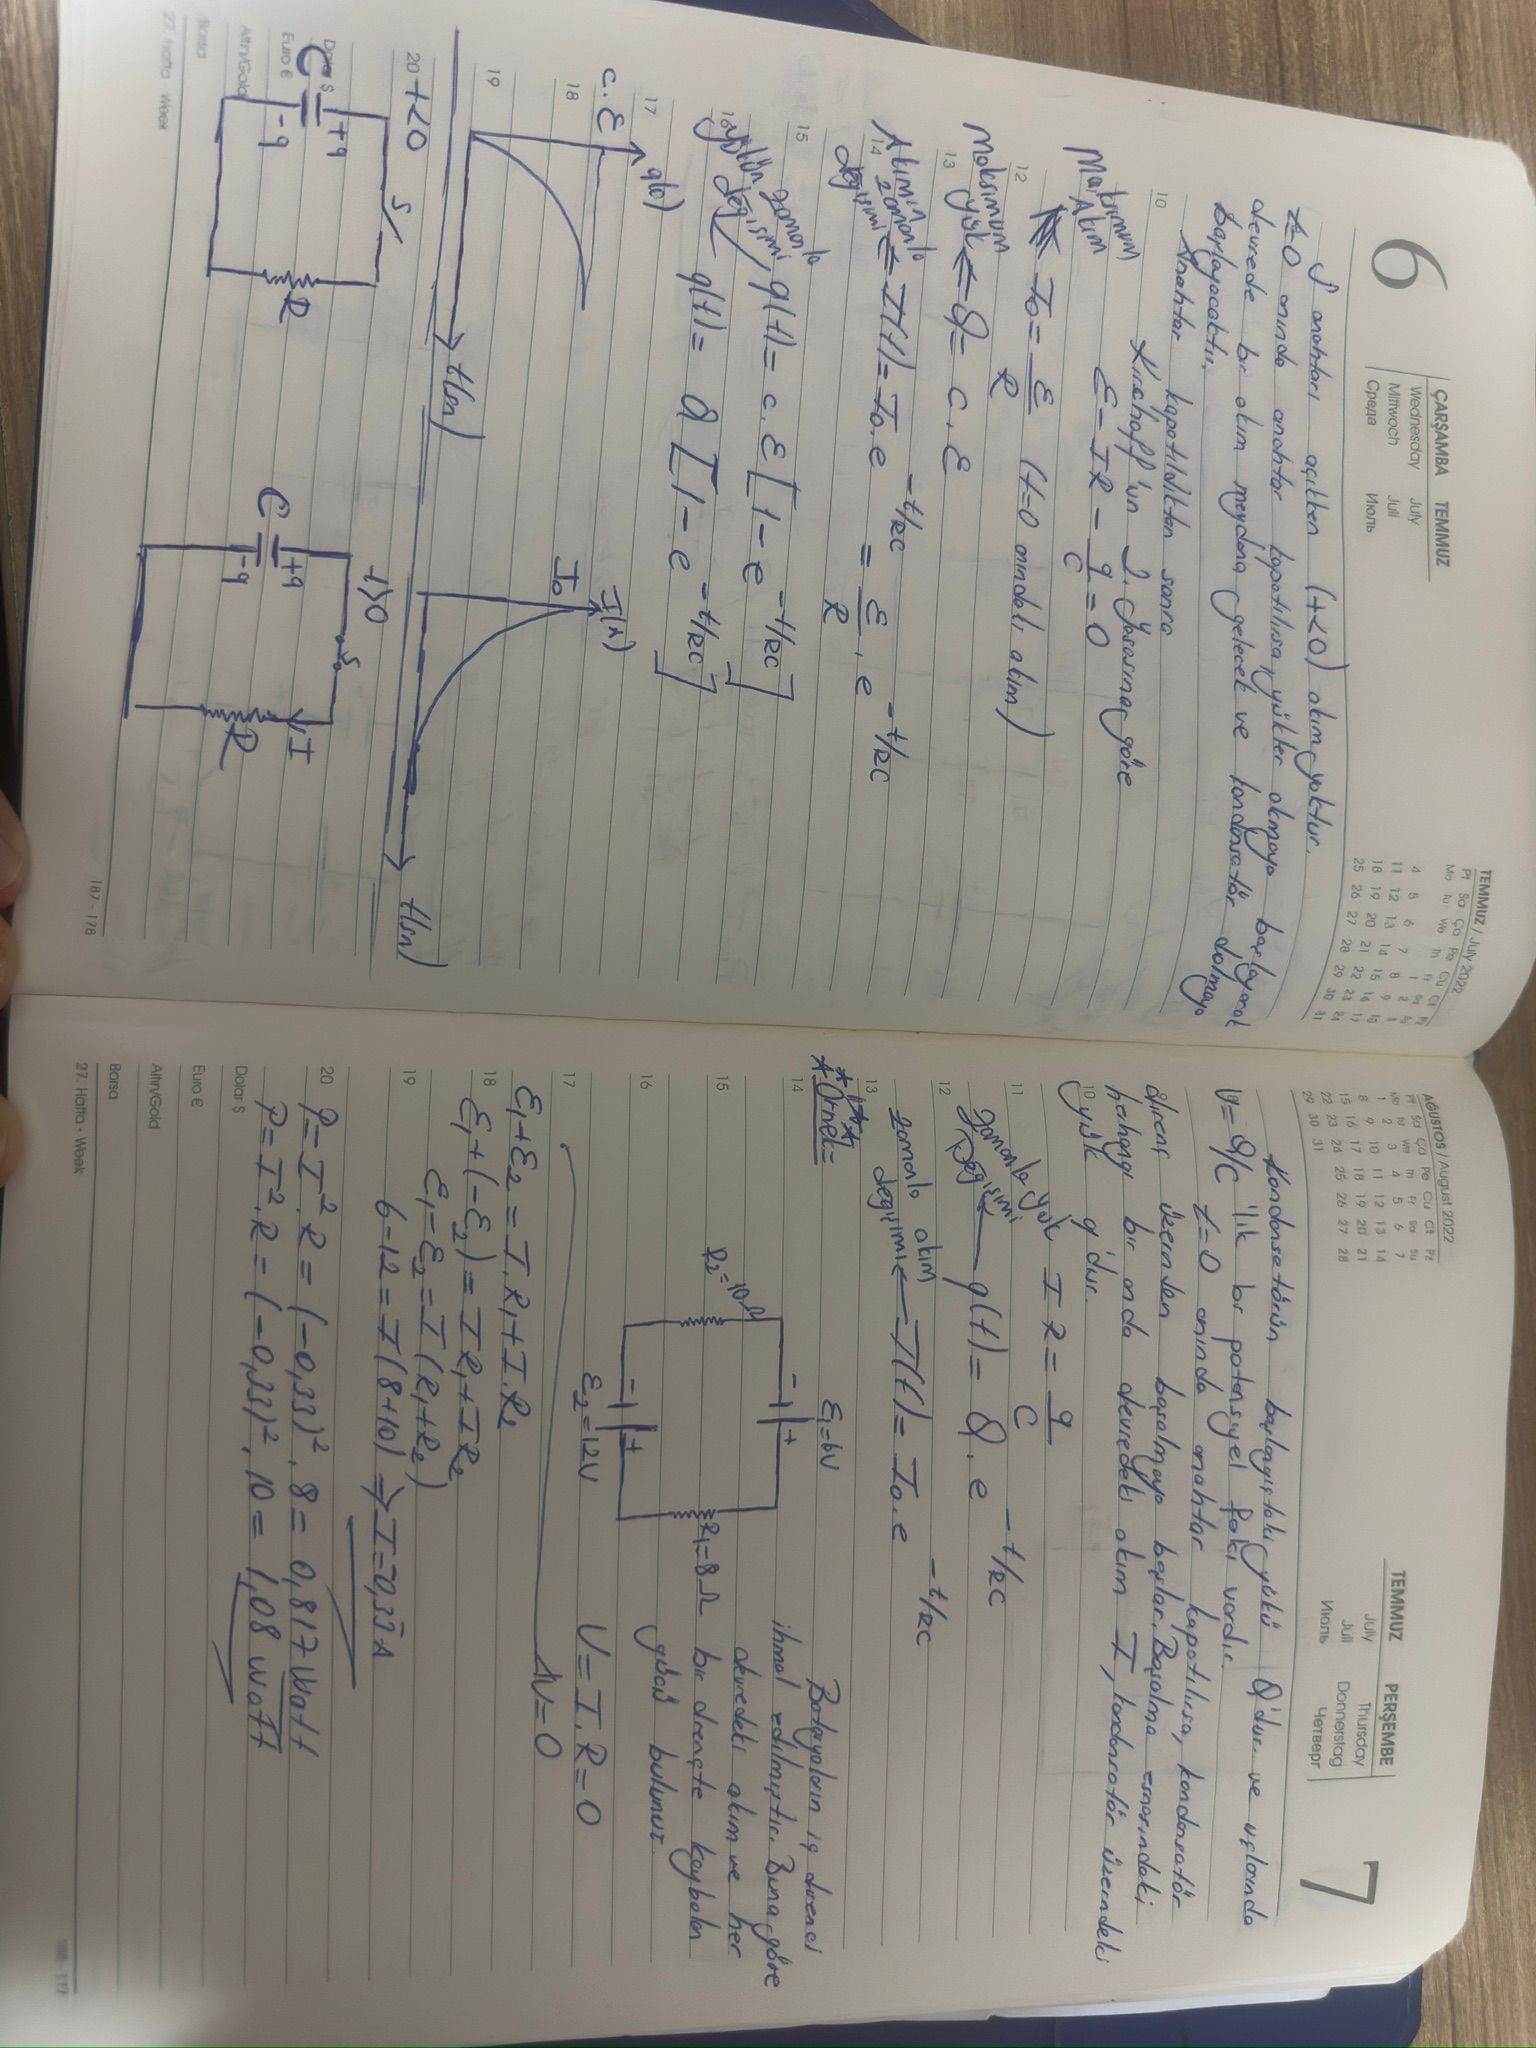 6
ÇARŞAMBA TEMMUZ
Wednesday July
Mittwoch Juli
Среда Июль
TEMMUZ / July 2022
Pt Sa Ça Pe Cu Ct Pz
Mo Tu We Th Fr Sa Su
1 2 3
4 5 6 7 8 9 10
11 12 13 14 15 16 17
18 19 20 21 22 23 24
25 26 27 28 29 30 31
S anahtarı açıkken (t<0) akım yoktur.
t=0 anında anahtar kapatılırsa, yükler akmaya başlayarak
devrede bir akım meydana gelecek ve kondansatör dolmaya
başlayacaktır.
Anahtar kapatıldıktan sonra
10
Kirschoff'un 2. Yasasına göre
ε - IR - q/C = 0
Maksimum Akım
I₀ = ε/R (t=0 anındaki akım)
12
Maksimum yük ⇐ Q = C.ε
13
Akımın zamanla değişimi ⇐ I(t) = I₀.e^(-t/RC) = ε/R . e^(-t/RC)
14
15
yükün zamanla değişimi
q(t) = c.ε [1 - e^(-t/RC)]
16
q(t) = Q [1 - e^(-t/RC)]
17
c.ε
18
I(A)
I₀
19
t(sn)
t(sn)
20 t<0
S
C +q -q R
t>0
S
C +q -q I R
Dolar $
Euro €
Altın/Gold
Borsa
27. Hafta - Week
187 - 178
AĞUSTOS / August 2022
Pt Sa Ça Pe Cu Ct Pz
Mo Tu We Th Fr Sa Su
1 2 3 4 5 6 7
8 9 10 11 12 13 14
15 16 17 18 19 20 21
22 23 24 25 26 27 28
29 30 31
TEMMUZ PERŞEMBE
July Thursday
Juli Donnerstag
Июль Четверг
7
Kondansatörün başlangıçtaki yükü Q'dur. ve uçlarında
V=Q/C 'lik bir potansiyel farkı vardır.
t=0 anında anahtar kapatılırsa, kondansatör
direnç üzerinden boşalmaya başlar. Boşalma esnasındaki
herhangi bir anda devredeki akım I, kondansatör üzerindeki
10 yük q'dur.
I R = q/C
11
zamanla yük Değişimi ← q(t) = Q.e^(-t/RC)
12
zamanla akım değişimi ← I(t) = I₀.e^(-t/RC)
13
Örnek=
ε₁=6V
14
R₂=10Ω
15
R₁=8Ω
16
ε₂=12V
Bataryaların iç direnci
ihmal edilmiştir. Buna göre
devredeki akım ve her
bir dirençte kaybolan
gücü bulunuz.
V=I.R=0
17
ΔV=0
ε₁+ε₂ = I.R₁+I.R₂
18
ε₁+(-ε₂) = IR₁+IR₂
ε₁-ε₂ = I(R₁+R₂)
19
6-12 = I(8+10) ⇒ I=-0,33 A
20
P=I².R = (-0,33)².8 = 0,817 Watt
P=I².R = (-0,33)².10 = 1,08 watt
Dolar $
Euro €
Altın/Gold
Borsa
27. Hafta - Week
188 - 177